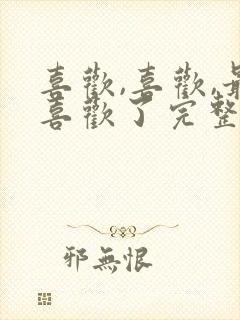 喜歡,喜歡,最
喜歡了完整
邪無恨